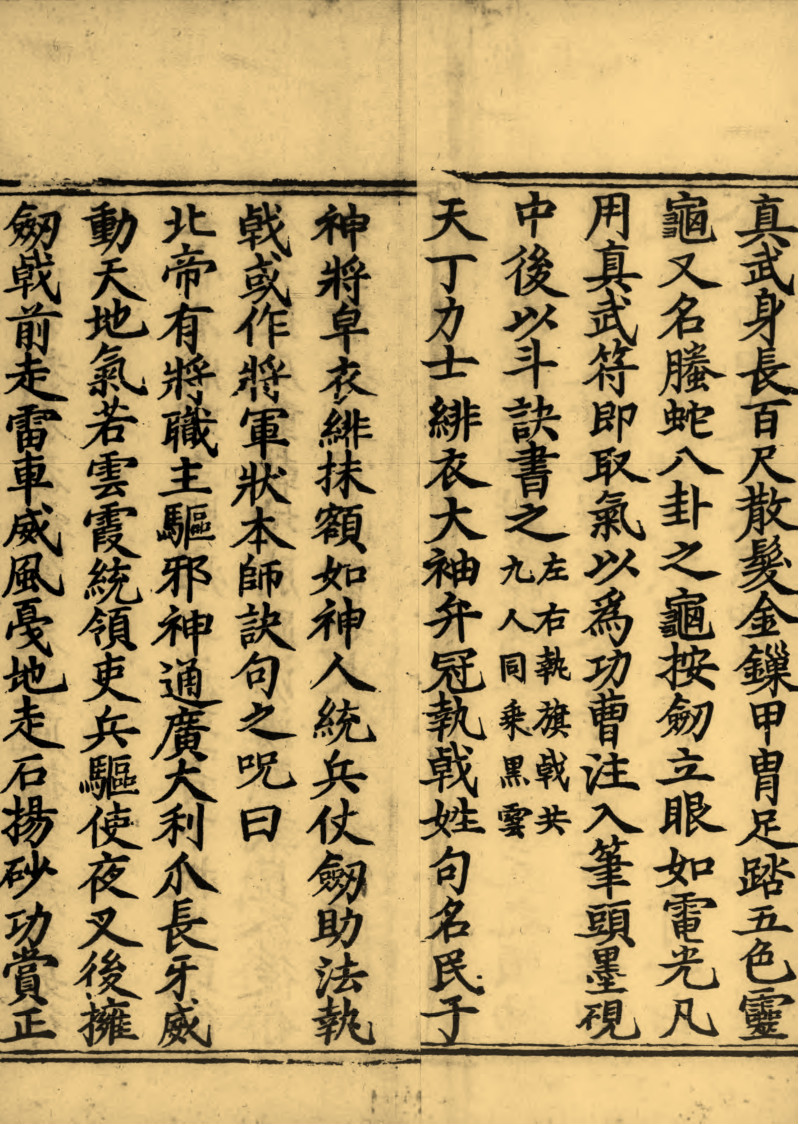 真武身長百尺散髮金鏁甲胄足踏五色靈
龜又名螣蛇八卦之龜按劒立眼如電光凡
用真武符即取氣以爲功曹注入筆頭墨硯
中後以斗訣書之左右執旗戟共
九人同乘黑雲
天丁力士緋衣大袖弁冠執戟姓句名民子
神將皁衣緋抹額如神人統兵仗劒助法執
戟或作將軍狀本師訣句之呪曰
北帝有將職主驅邪神通廣大利爪長牙威
動天地氣若雲霞統領吏兵驅使夜叉後擁
劒戟前走雷車威風戞地走石揚砂功賞正